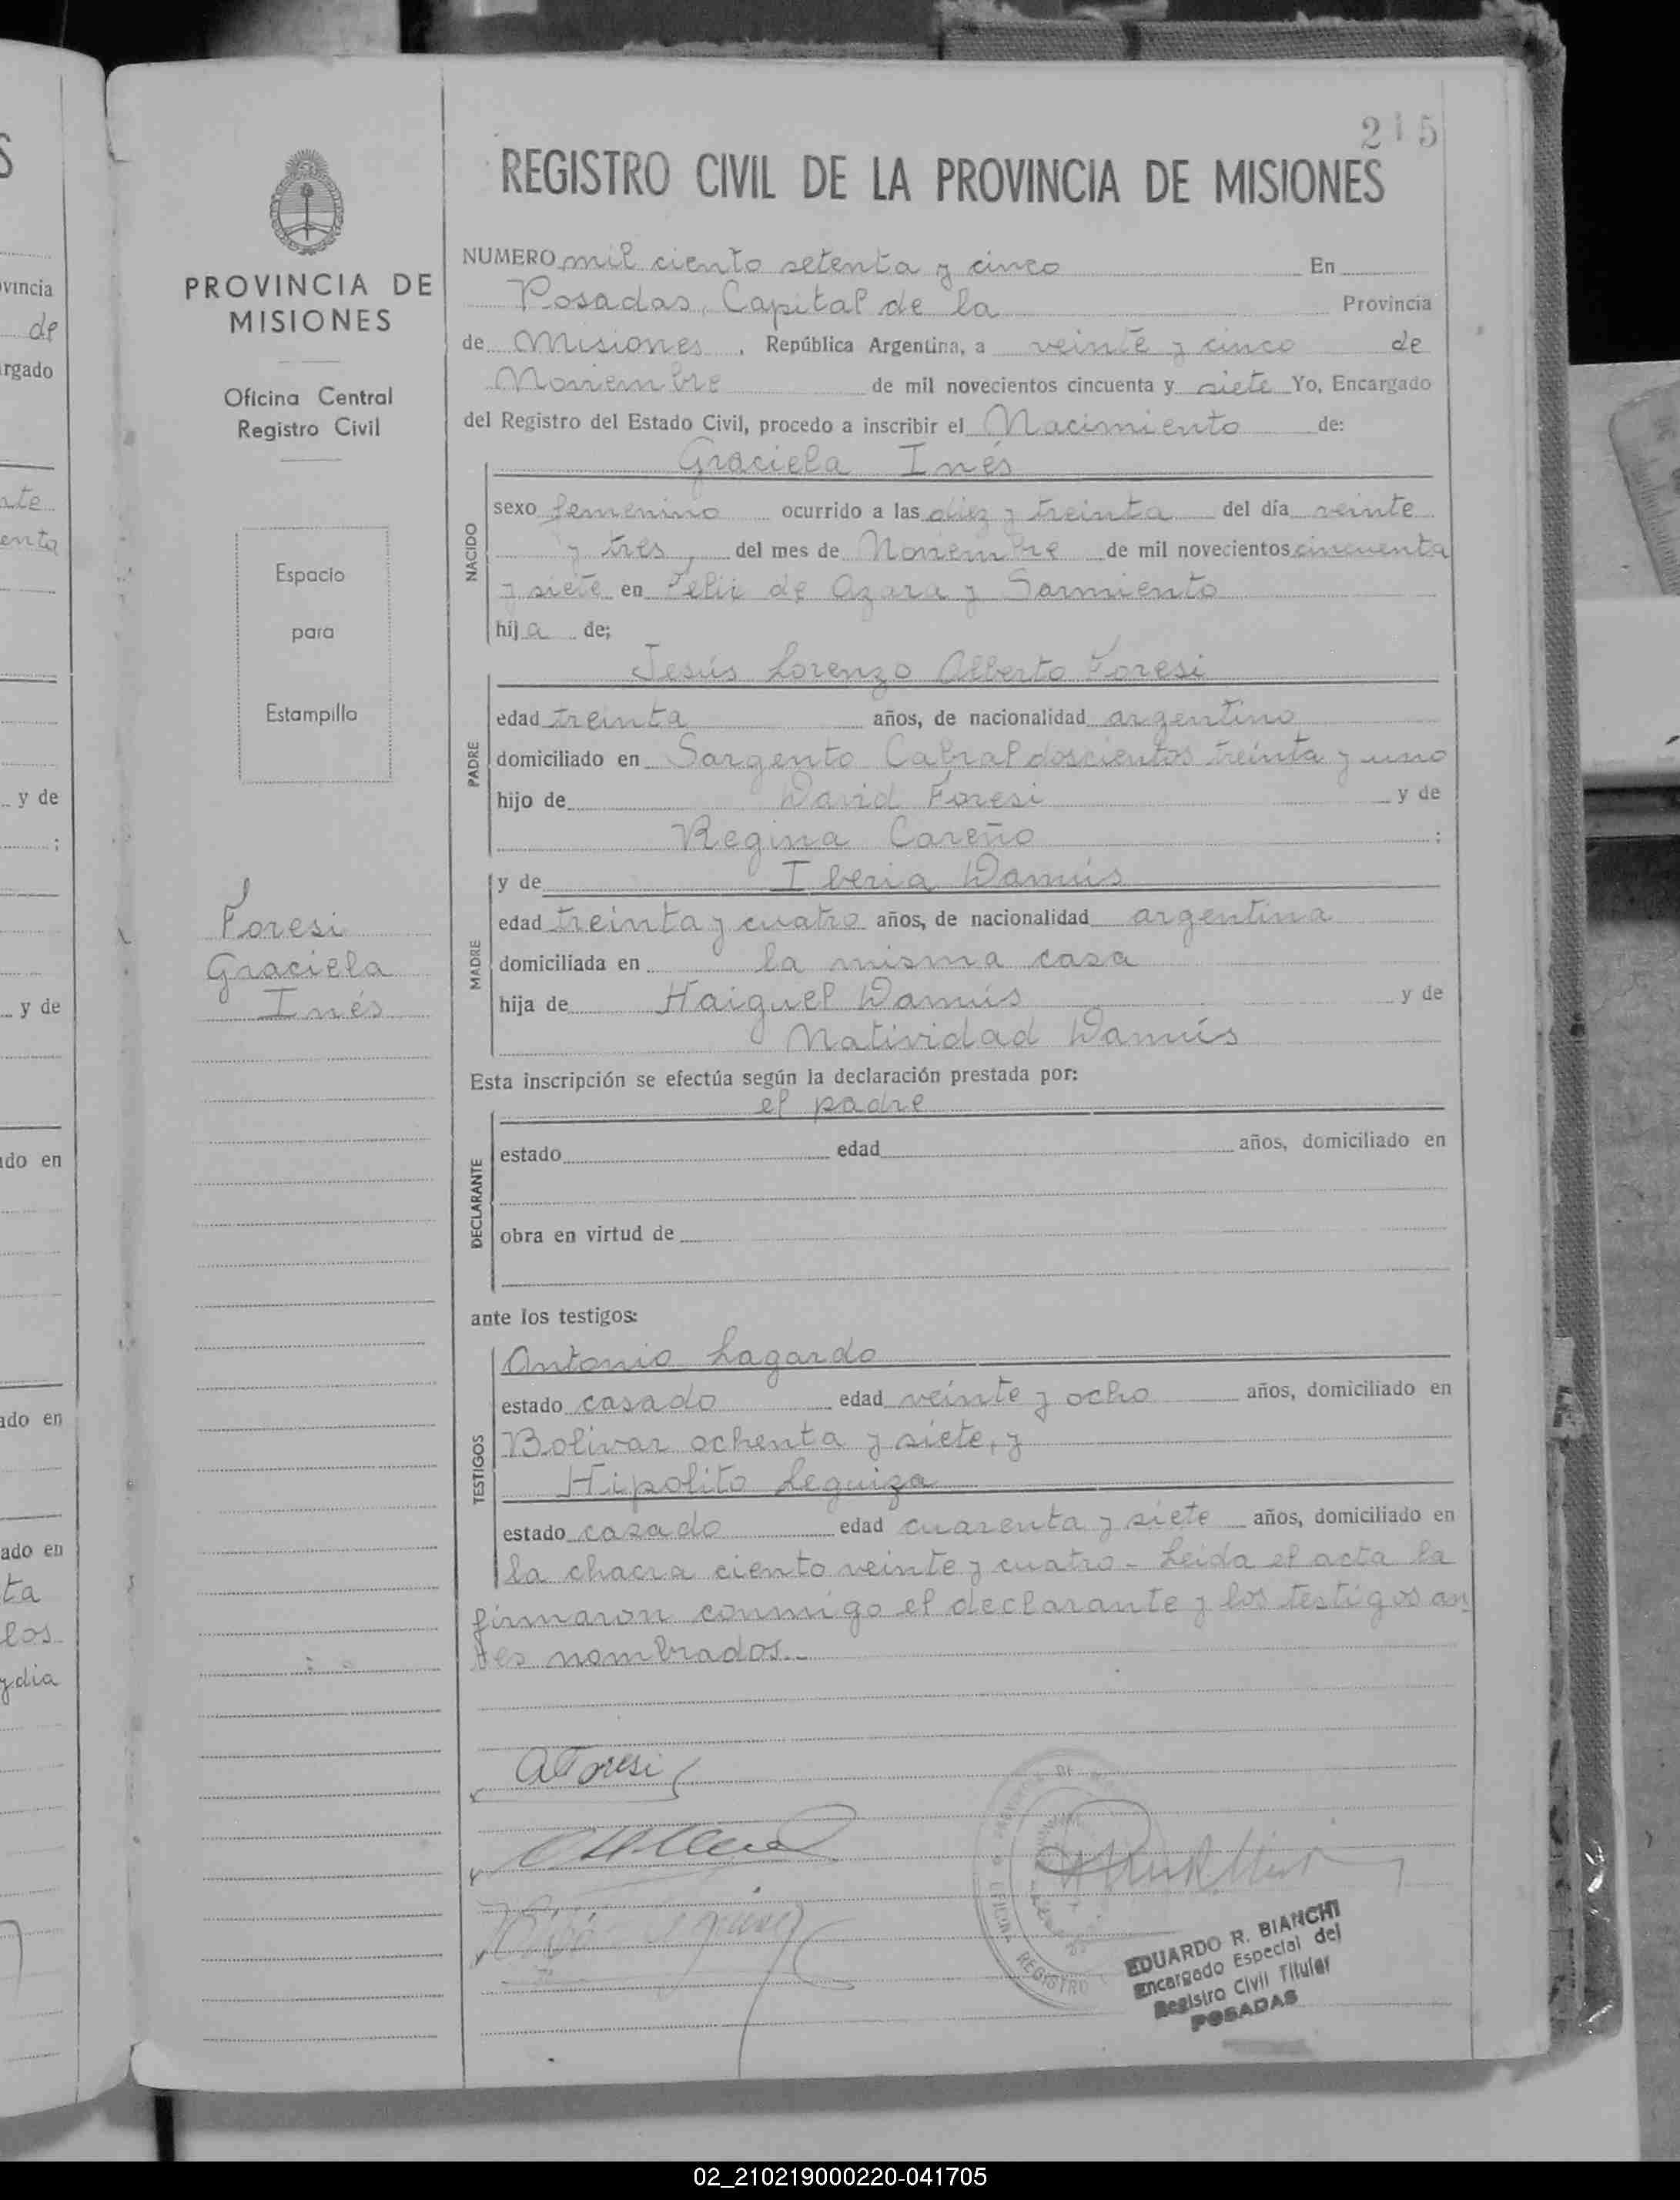 215
REGISTRO CIVIL DE LA PROVINCIA DE MISIONES
PROVINCIA DE
MISIONES
Oficina Central
Registro Civil
Espacio
para
Estampilla
Foresi
Graciela
Inés
NUMERO mil ciento setenta y cinco En
Posadas, Capital de la Provincia
de Misiones, República Argentina, a veinte y cinco de
Noviembre de mil novecientos cincuenta y siete Yo, Encargado
del Registro del Estado Civil, procedo a inscribir el Nacimiento de:
Graciela Inés
NACIDO
sexo femenino ocurrido a las diez y treinta del día veinte
y tres, del mes de Noviembre de mil novecientos cincuenta
y siete en Felix de Azara y Sarmiento
hija de;
Jesús Lorenzo Alberto Foresi
PADRE
edad treinta años, de nacionalidad argentino
domiciliado en Sargento Cabral doscientos treinta y uno
hijo de David Foresi y de
Regina Careño ;
y de Iberia Damús
MADRE
edad treinta y cuatro años, de nacionalidad argentina
domiciliada en la misma casa
hija de Haiguel Damús y de
Natividad Damús
Esta inscripción se efectúa según la declaración prestada por:
el padre
DECLARANTE
estado edad años, domiciliado en
obra en virtud de
ante los testigos:
TESTIGOS
Antonio Lagardo
estado casado edad veinte y ocho años, domiciliado en
Bolivar ochenta y siete, y
Hipolito Leguiza
estado casado edad cuarenta y siete años, domiciliado en
la chacra ciento veinte y cuatro - Leida el acta la
firmaron conmigo el declarante y los testigos an
tes nombrados.-
A Foresi
EDUARDO R. BIANCHI
Encargado Especial del
Registro Civil Titular
POSADAS
02_210219000220-041705